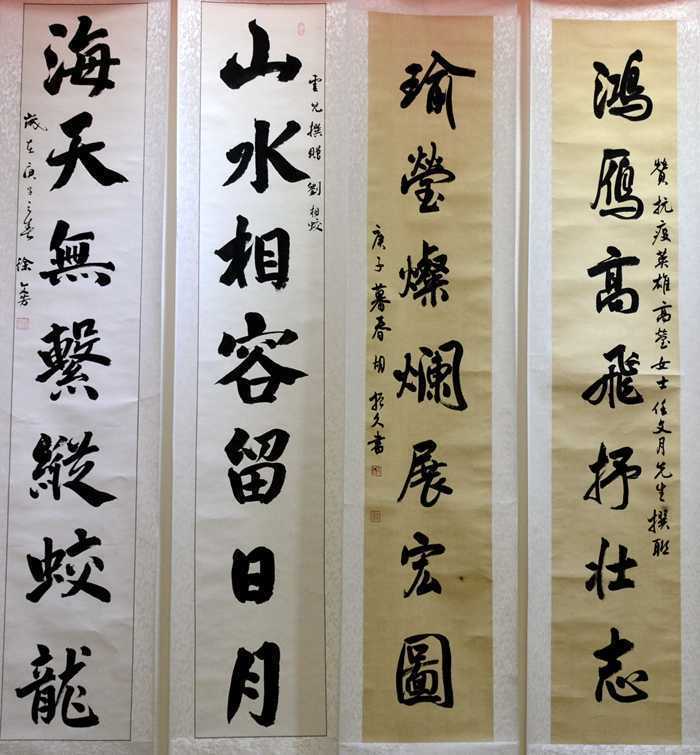 鴻鴈高飛抒壯志
贊抗疫英雄高瑩女士任文月先生撰聯
瑜瑩燦爛展宏圖
庚子暮春胡振久書
山水相容留日月
雲允撰贈劉相蛟
海天無繫縱蛟龍
歲在庚子之春徐